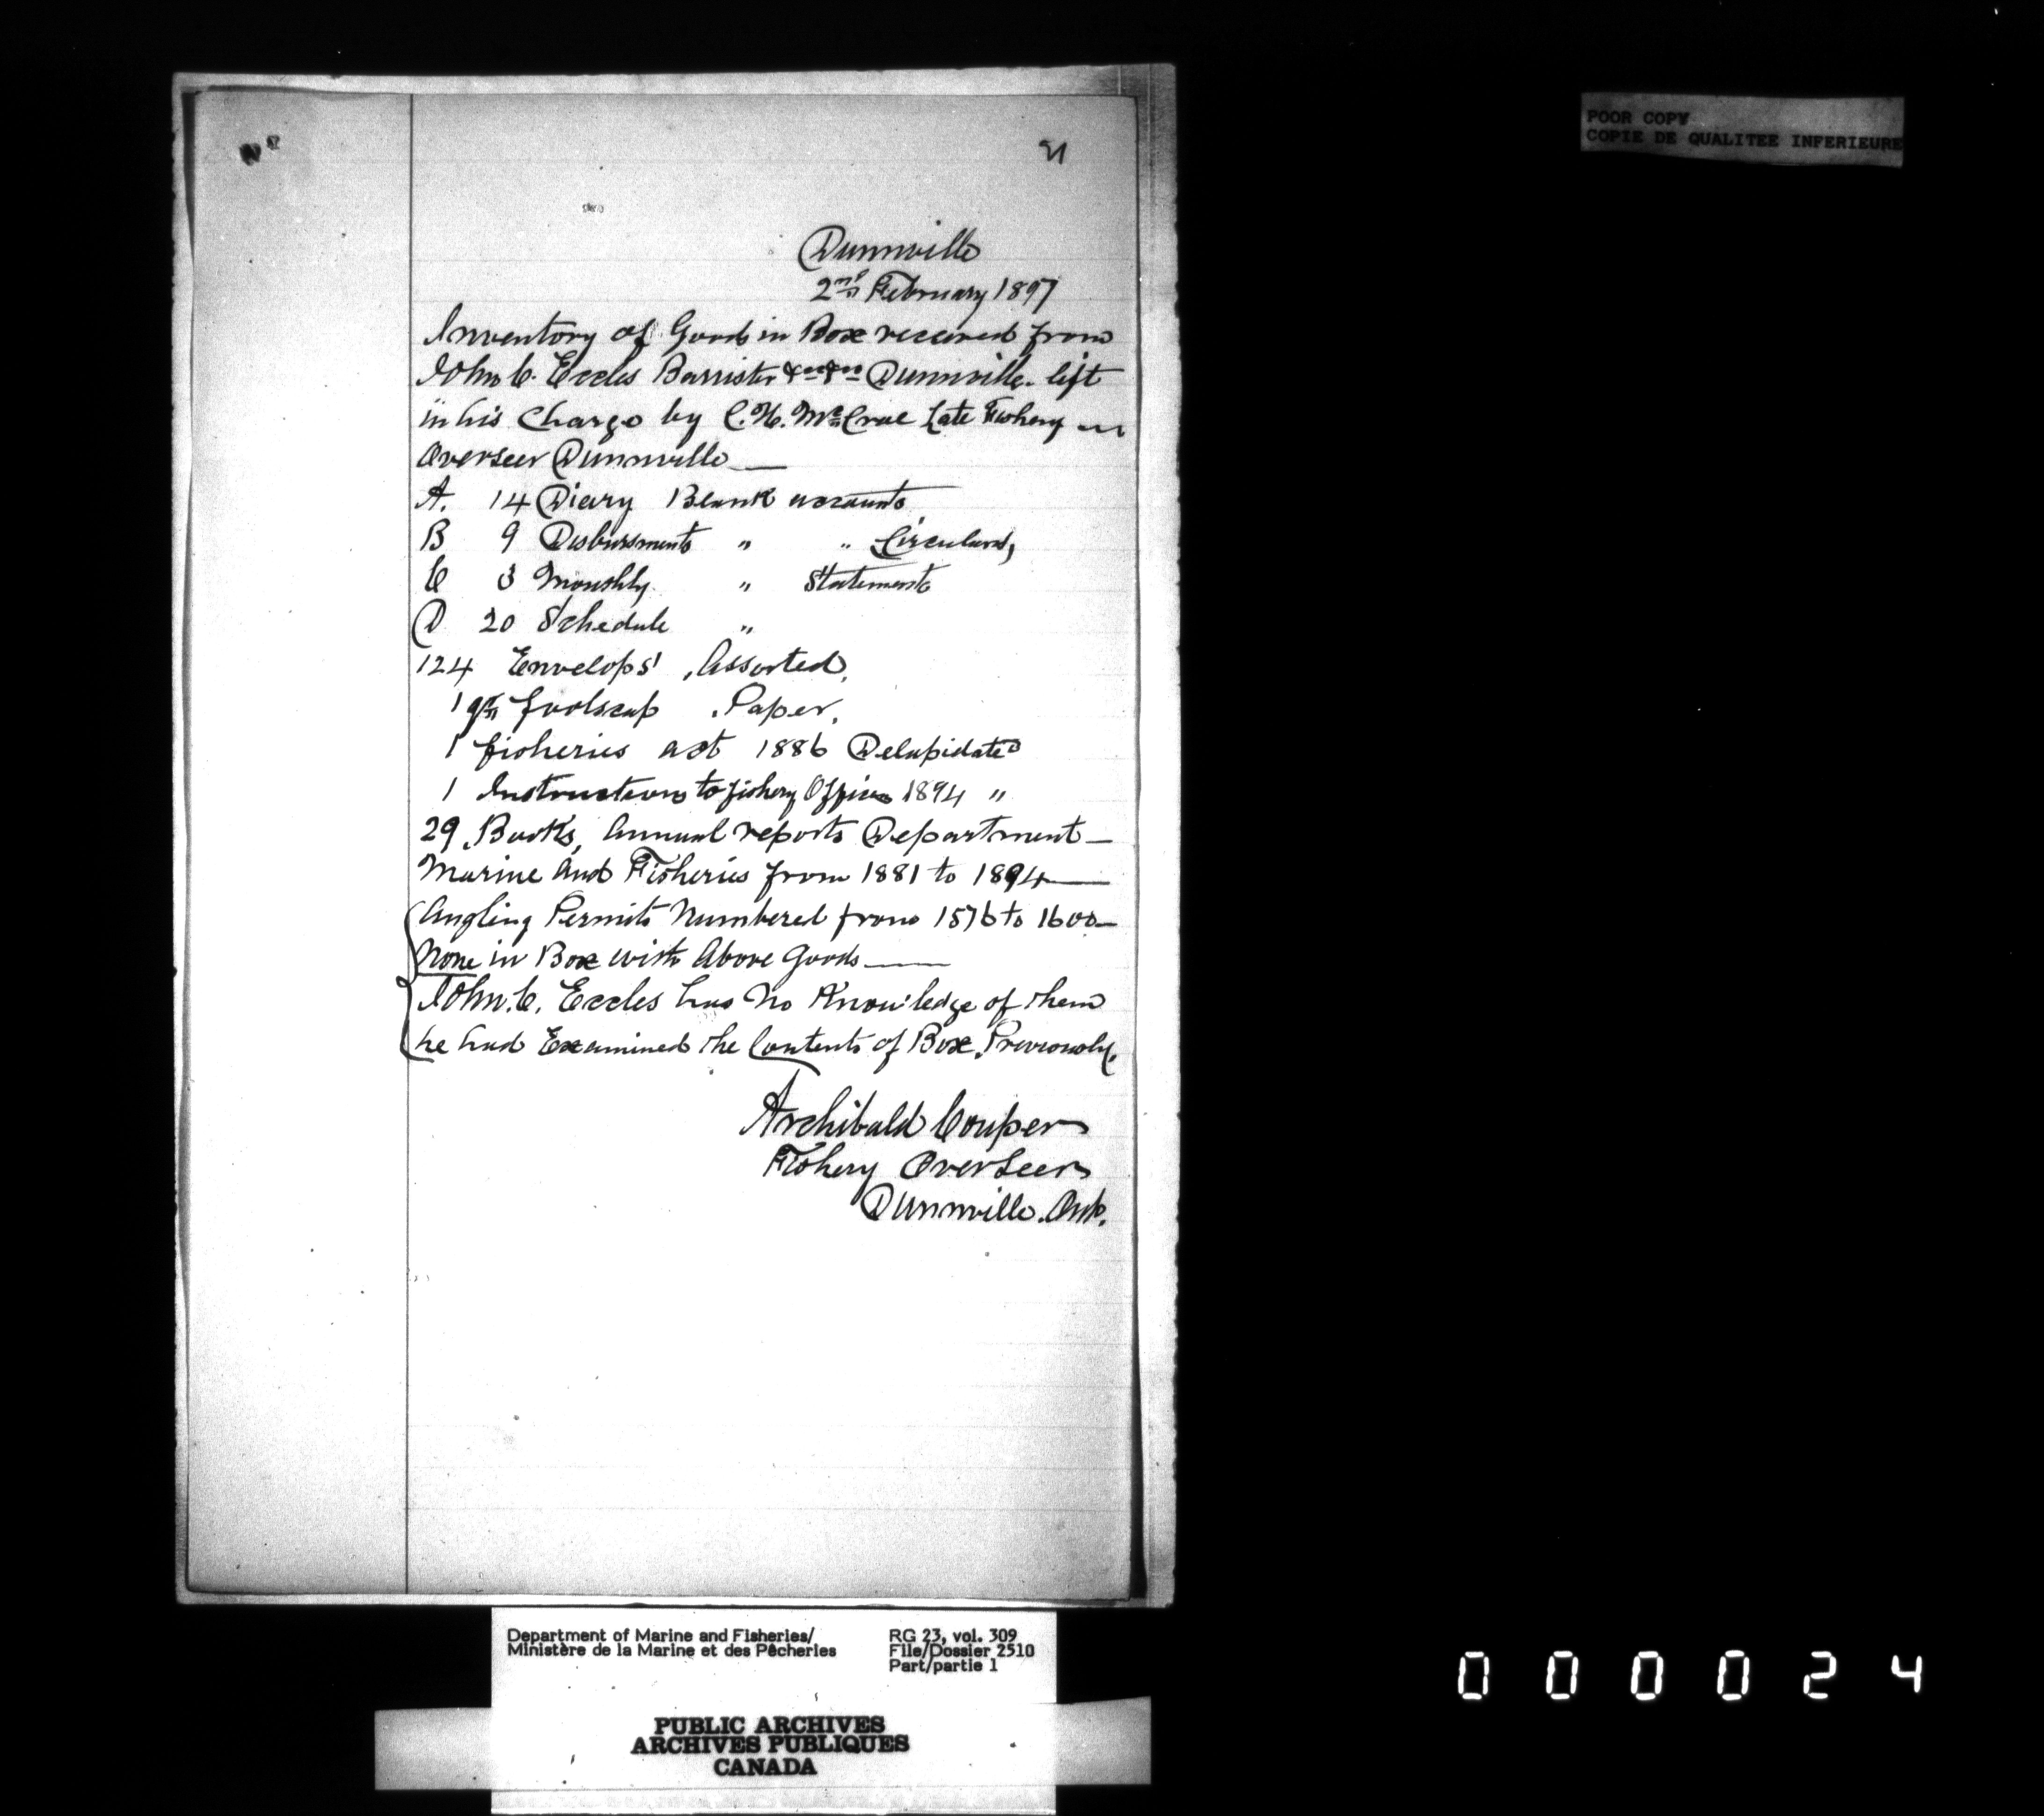 21
POOR COPY
COPIE DE QUALITEE INFERIEURE
Dunnville
2nd February 1897
Inventory of Goods in Box received from
John C. Eccles Barrister Dunnville. left
in his Charge by C.H. McCrae Late Fishery
Overseer Dunnville —
A. 14 Diary Blank accounts
B 9 Disbursments " " Circulars,
C 3 Monthly " Statements
D 20 Schedule "
124 Envelops' Assorted,
1 qr foolscap Paper,
1 fisheries act 1886 Delapidated
1 Instructions to fishery Officers 1894 "
29 Books, Annual reports Department —
Marine and Fisheries from 1881 to 1894 —
Angling Permits Numbered from 1576 to 1600 —
None in Box with Above Goods —
John. C. Eccles has No Knowledge of them
he had Examined the Contents of Box Previously.
Archibald Couper
Fishery Overseer
Dunnville. Ont.
Department of Marine and Fisheries/
Ministère de la Marine et des Pêcheries
RG 23, vol. 309
File/Dossier 2510
Part/partie 1
PUBLIC ARCHIVES
ARCHIVES PUBLIQUES
CANADA
0 0 0 0 2 4